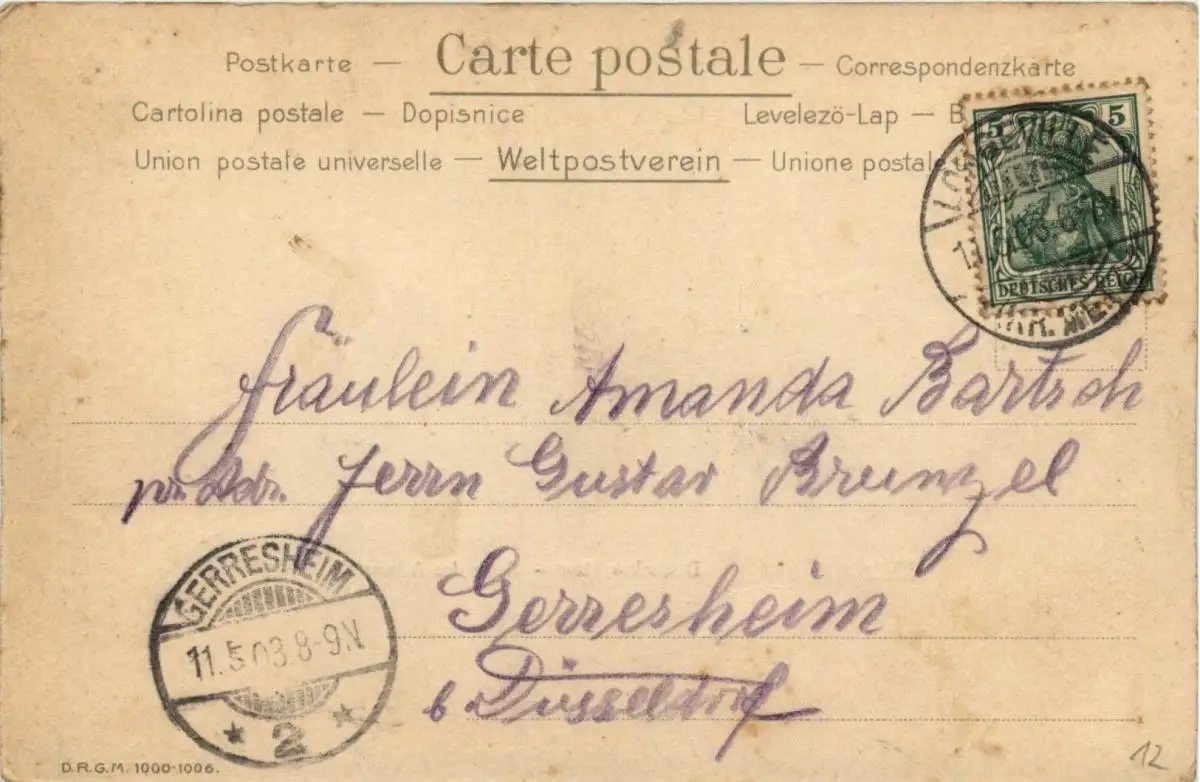 Postkarte — Carte postale — Correspondenzkarte
Cartolina postale — Dopisnice
Levelező-Lap —
Union postale universelle — Weltpostverein — Unione postale
5 5
DEUTSCHES REICH
LONGEVILLE
Fräulein Amanda Bartsch
pr. Adr. Herrn Gustav Brunzel
Gerresheim
b Düsseldorf
GERRESHEIM
11.5.03.8-9N
* 2 *
D.R.G.M. 1000-1006.
12